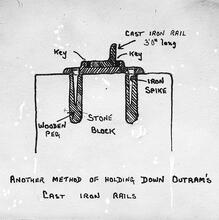 CAST IRON RAIL
3'0" long
Key
Key
IRON
SPIKE
WOODEN
PEG
STONE
BLOCK
ANOTHER METHOD OF HOLDING DOWN OUTRAM'S
CAST IRON RAILS